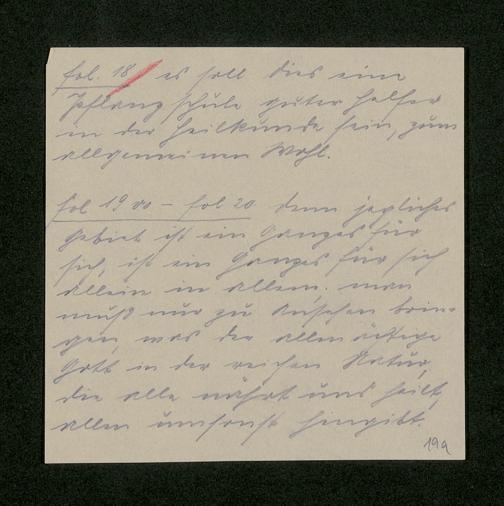 fol. 18 es soll dies eine
Pflanzschule guter Helfer
in der Heilkunde sein, zum
allgemeinen Wohl.
fol 19 vo - fol 20 denn jegliches
gebiet ist ein Ganzes für
sich, ist ein Ganzes für sich
allein in allem. man
muß nur zu Ansehen brin-
gen, was der allmächtige
Gott in der reichen Natur,
die alle nährt und heilt,
allen umsonst hingibt.
19a